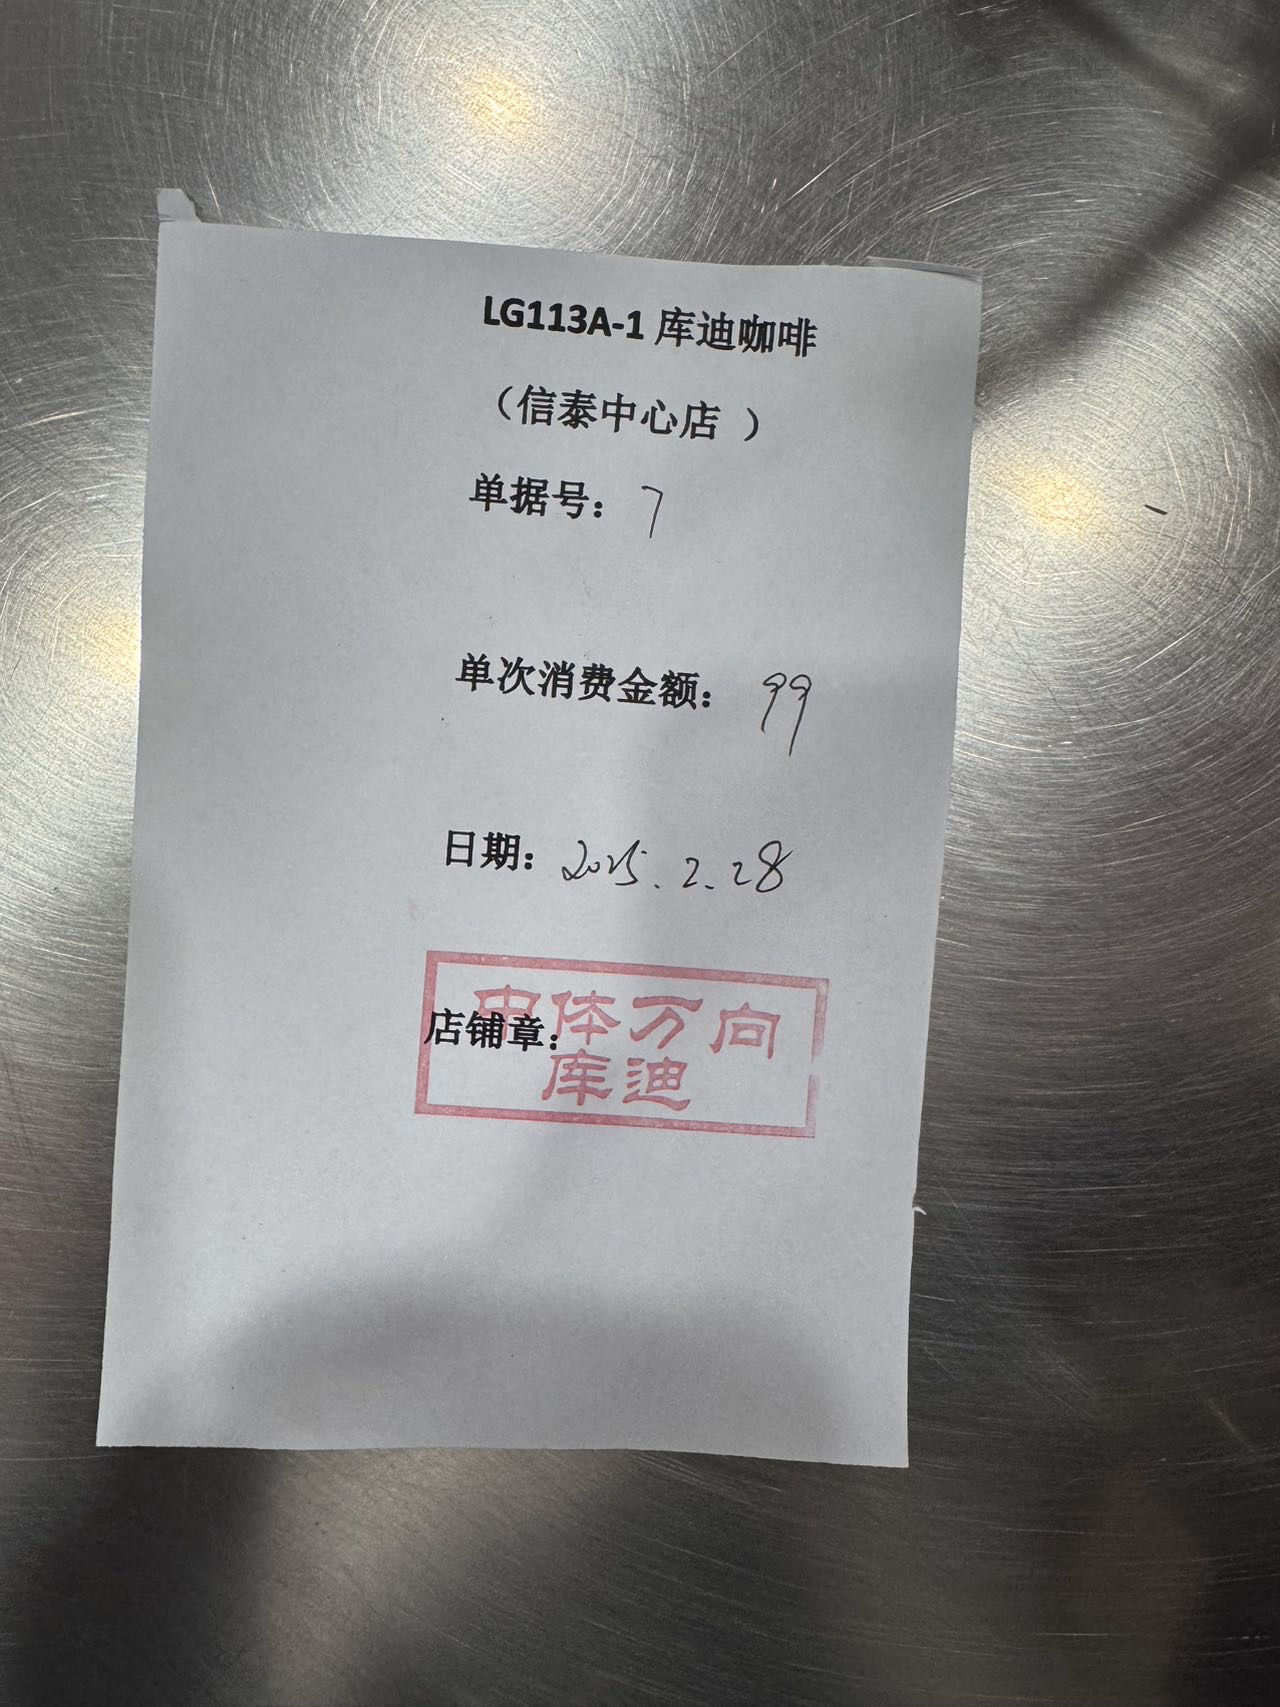 LG113A-1 库迪咖啡
（信泰中心店 ）
单据号：7
单次消费金额：99
日期：2025.2.28
店铺章：
中体万向
库迪